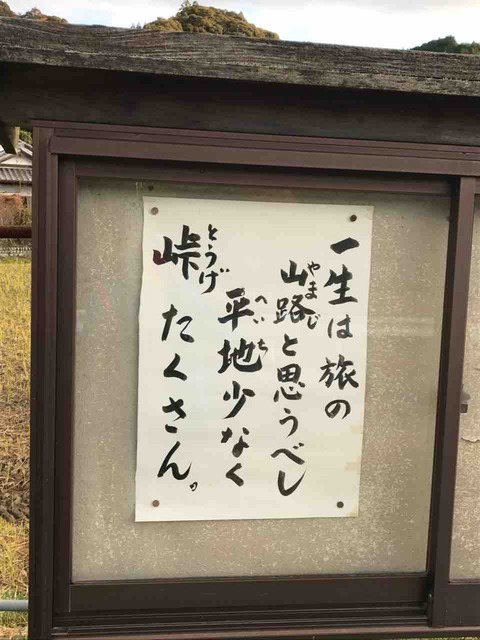 一生は旅の
山路と思うべし
やまじ
平地少なく
へいち
峠たくさん。
とうげ